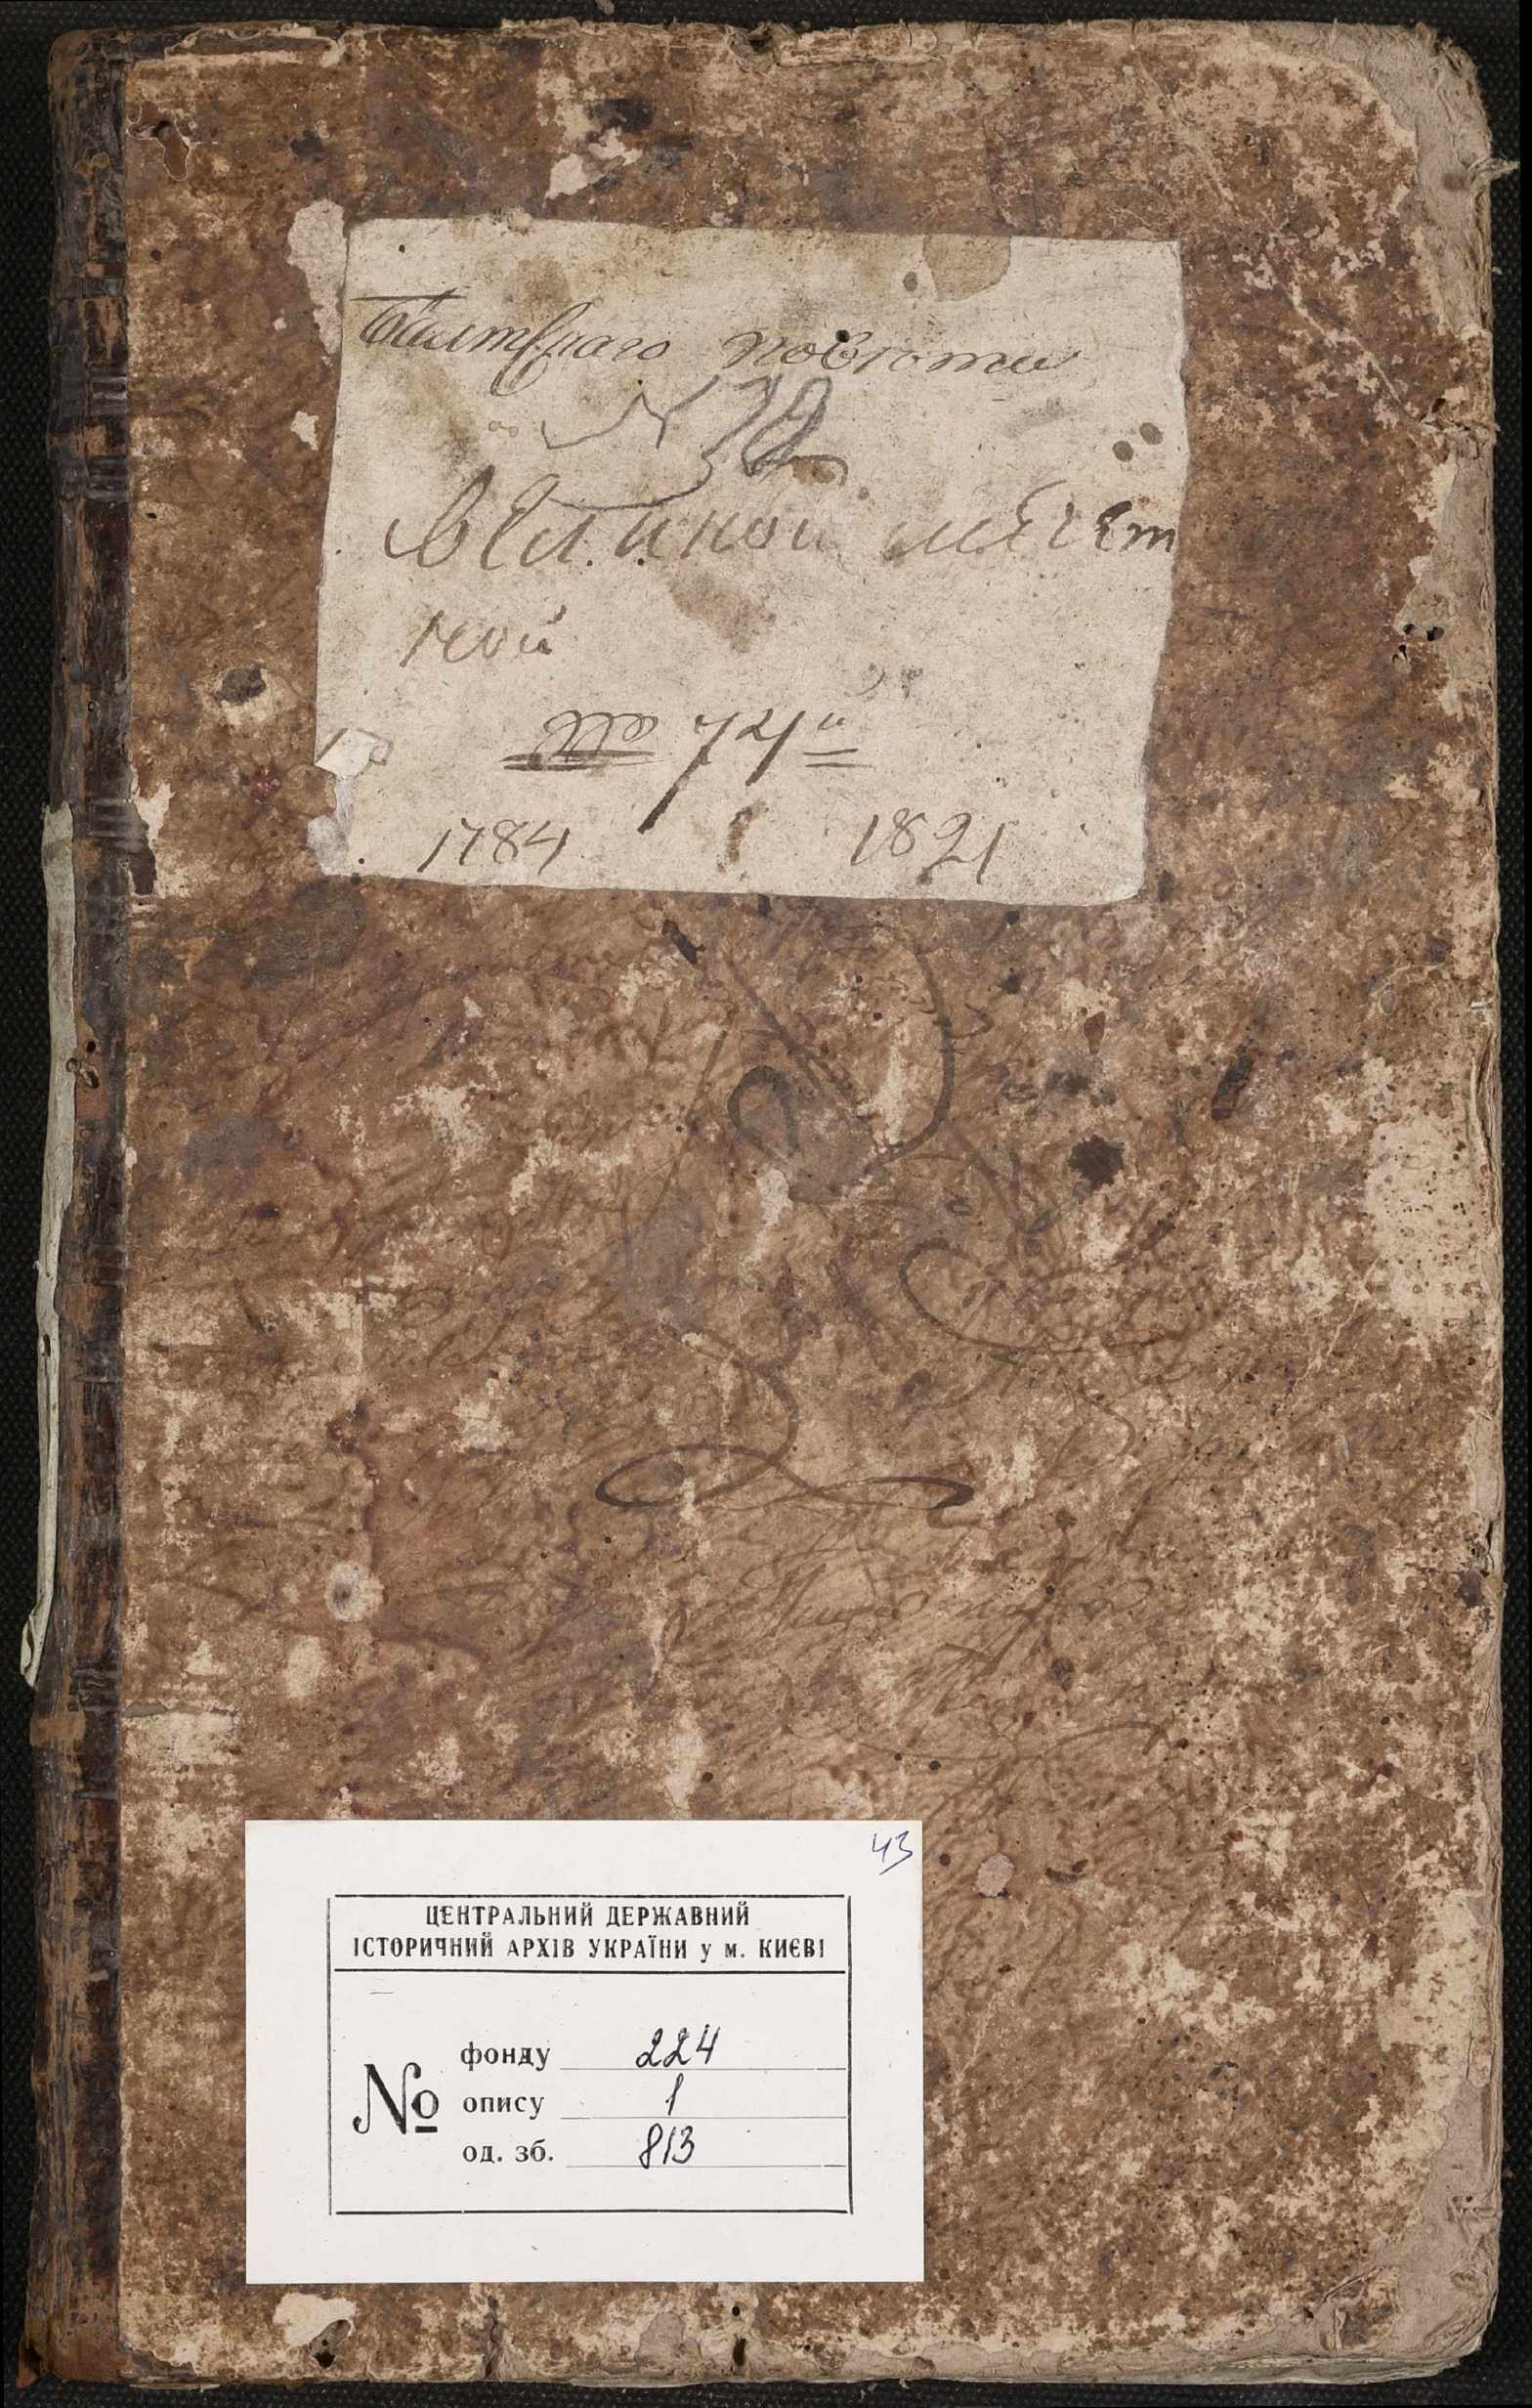 Балтскаго повѣта
№ 72
Великой мечет
ной
№ 74й
1784 1821
43
ЦЕНТРАЛЬНИЙ ДЕРЖАВНИЙ
ІСТОРИЧНИЙ АРХІВ УКРАЇНИ у м. КИЄВІ
№
фонду 224
опису 1
од. зб. 813